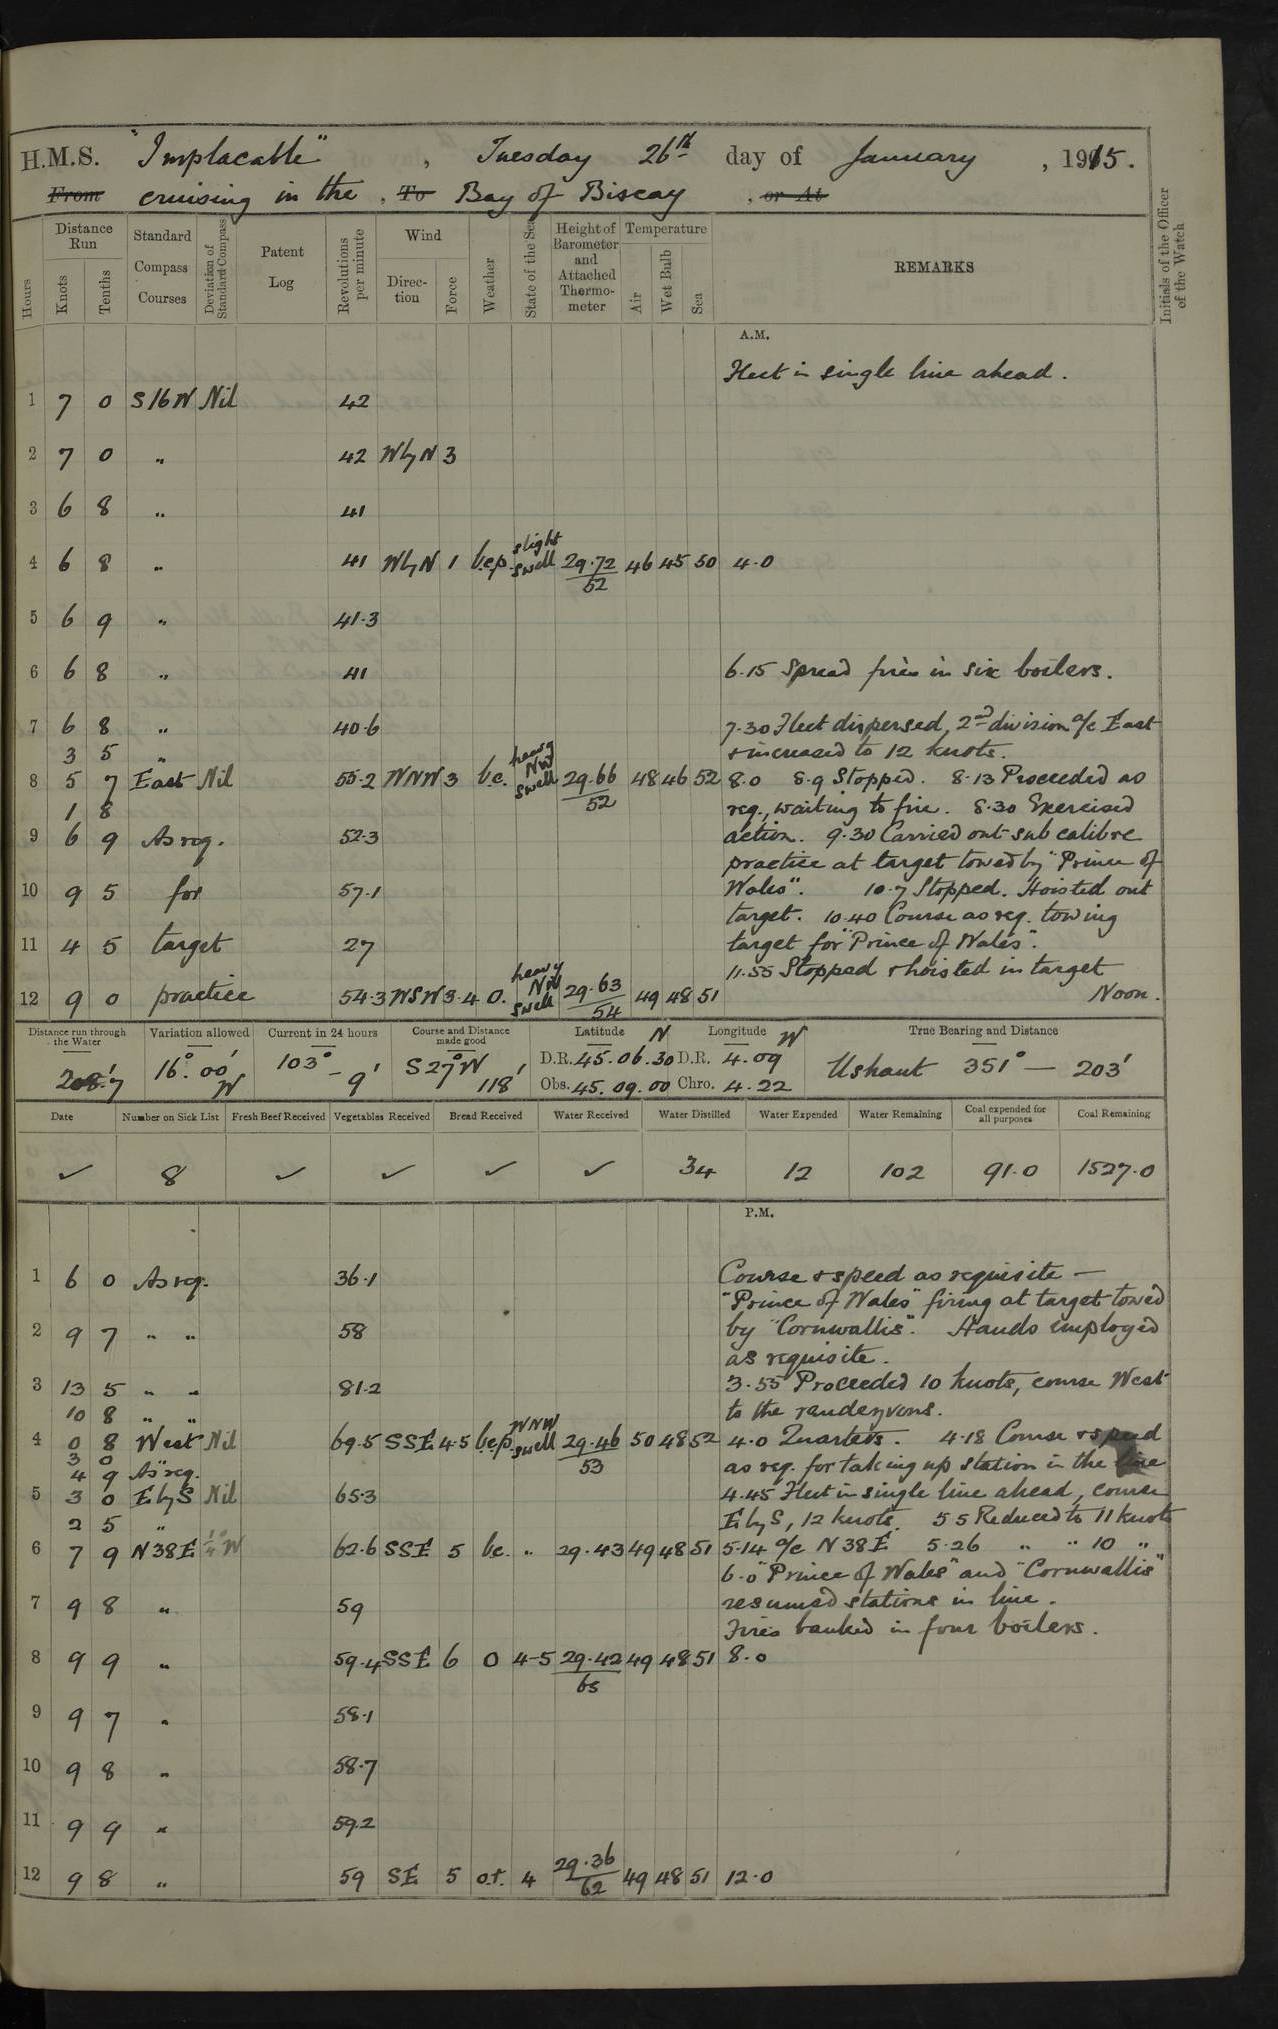 H.M.S. "Implacable", Tuesday 26th day of January, 1915.
From cruising in the, To Bay of Biscay, or At
Hours
Distance Run
Knots
Tenths
Standard Compass Courses
Deviation of Standard Compass
Patent Log
Revolutions per minute
Wind
Direction
Force
Weather
State of the Sea
Height of Barometer and Attached Thermometer
Temperature
Air
Wet Bulb
Sea
REMARKS
Initials of the Officer of the Watch
A.M.
Fleet in single line ahead.
1 7 0 S16W Nil 42
2 7 0 " 42 WbyN 3
3 6 8 " 41
4 6 8 " 41 WbyN 1 b.c.p. slight swell 29.72 52 46 45 50 4.0
5 6 9 " 41.3
6 6 8 " 41 6.15 Spread fires in six boilers.
7 6 8 " 40.6 7.30 Fleet dispersed, 2nd division a/c East
3 5 " + increased to 12 knots.
8 5 7 East Nil 55.2 WNW 3 b.c. heavy NW swell 29.66 52 48 46 52 8.0 8.9 Stopped. 8.13 Proceeded as
1 8 req., waiting to fire. 8.30 Exercised
9 6 9 As req. 52.3 action. 9.30 Carried out sub calibre
practice at target towed by "Prince of
10 9 5 for 57.1 Wales". 10.7 Stopped. Hoisted out
target. 10.40 Course as req. towing
11 4 5 target 27 target for "Prince of Wales".
11.55 Stopped + hoisted in target
12 9 0 practice 54.3 WSW 3.4 O. heavy NW swell 29.63 54 49 48 51 Noon.
Distance run through the Water
208.7
Variation allowed
16° 00' W
Current in 24 hours
103° - 9'
Course and Distance made good
S 27° W 118'
Latitude N
D.R. 45.06.30
Obs. 45.09.00
Longitude W
D.R. 4.09
Chro. 4.22
True Bearing and Distance
Ushant 351° — 203'
Date Number on Sick List Fresh Beef Received Vegetables Received Bread Received Water Received Water Distilled Water Expended Water Remaining Coal expended for all purposes Coal Remaining
✓ 8 ✓ ✓ ✓ ✓ 34 12 102 91.0 1527.0
P.M.
1 6 0 As req. 36.1 Course + speed as requisite —
"Prince of Wales" firing at target towed
2 9 7 " " 58 by "Cornwallis". Hands employed
as requisite.
3 13 5 " " 81.2 3.55 Proceeded 10 knots, course West
10 8 " " to the rendezvous.
4 0 8 West Nil 69.5 SSE 4.5 b.c.p. WNW swell 29.46 53 50 48 52 4.0 Quarters. 4.18 Course + speed
3 0
4 9 As req. as req. for taking up station in the line
5 3 0 EbyS Nil 65.3 4.45 Fleet in single line ahead, course
2 5 " EbyS, 12 knots. 5.5 Reduced to 11 knots
6 7 9 N38E W 62.6 SSE 5 b.c. " 29.43 49 48 51 5.14 a/c N38E 5.26 " " 10 "
6.0 "Prince of Wales" and "Cornwallis"
7 9 8 " 59 resumed stations in line.
Fires banked in four boilers.
8 9 9 " 59.4 SSE 6 O 4-5 29.42 65 49 48 51 8.0
9 9 7 " 58.1
10 9 8 " 58.7
11 9 9 " 59.2
12 9 8 " 59 SE 5 o.r. 4 29.36 62 49 48 51 12.0